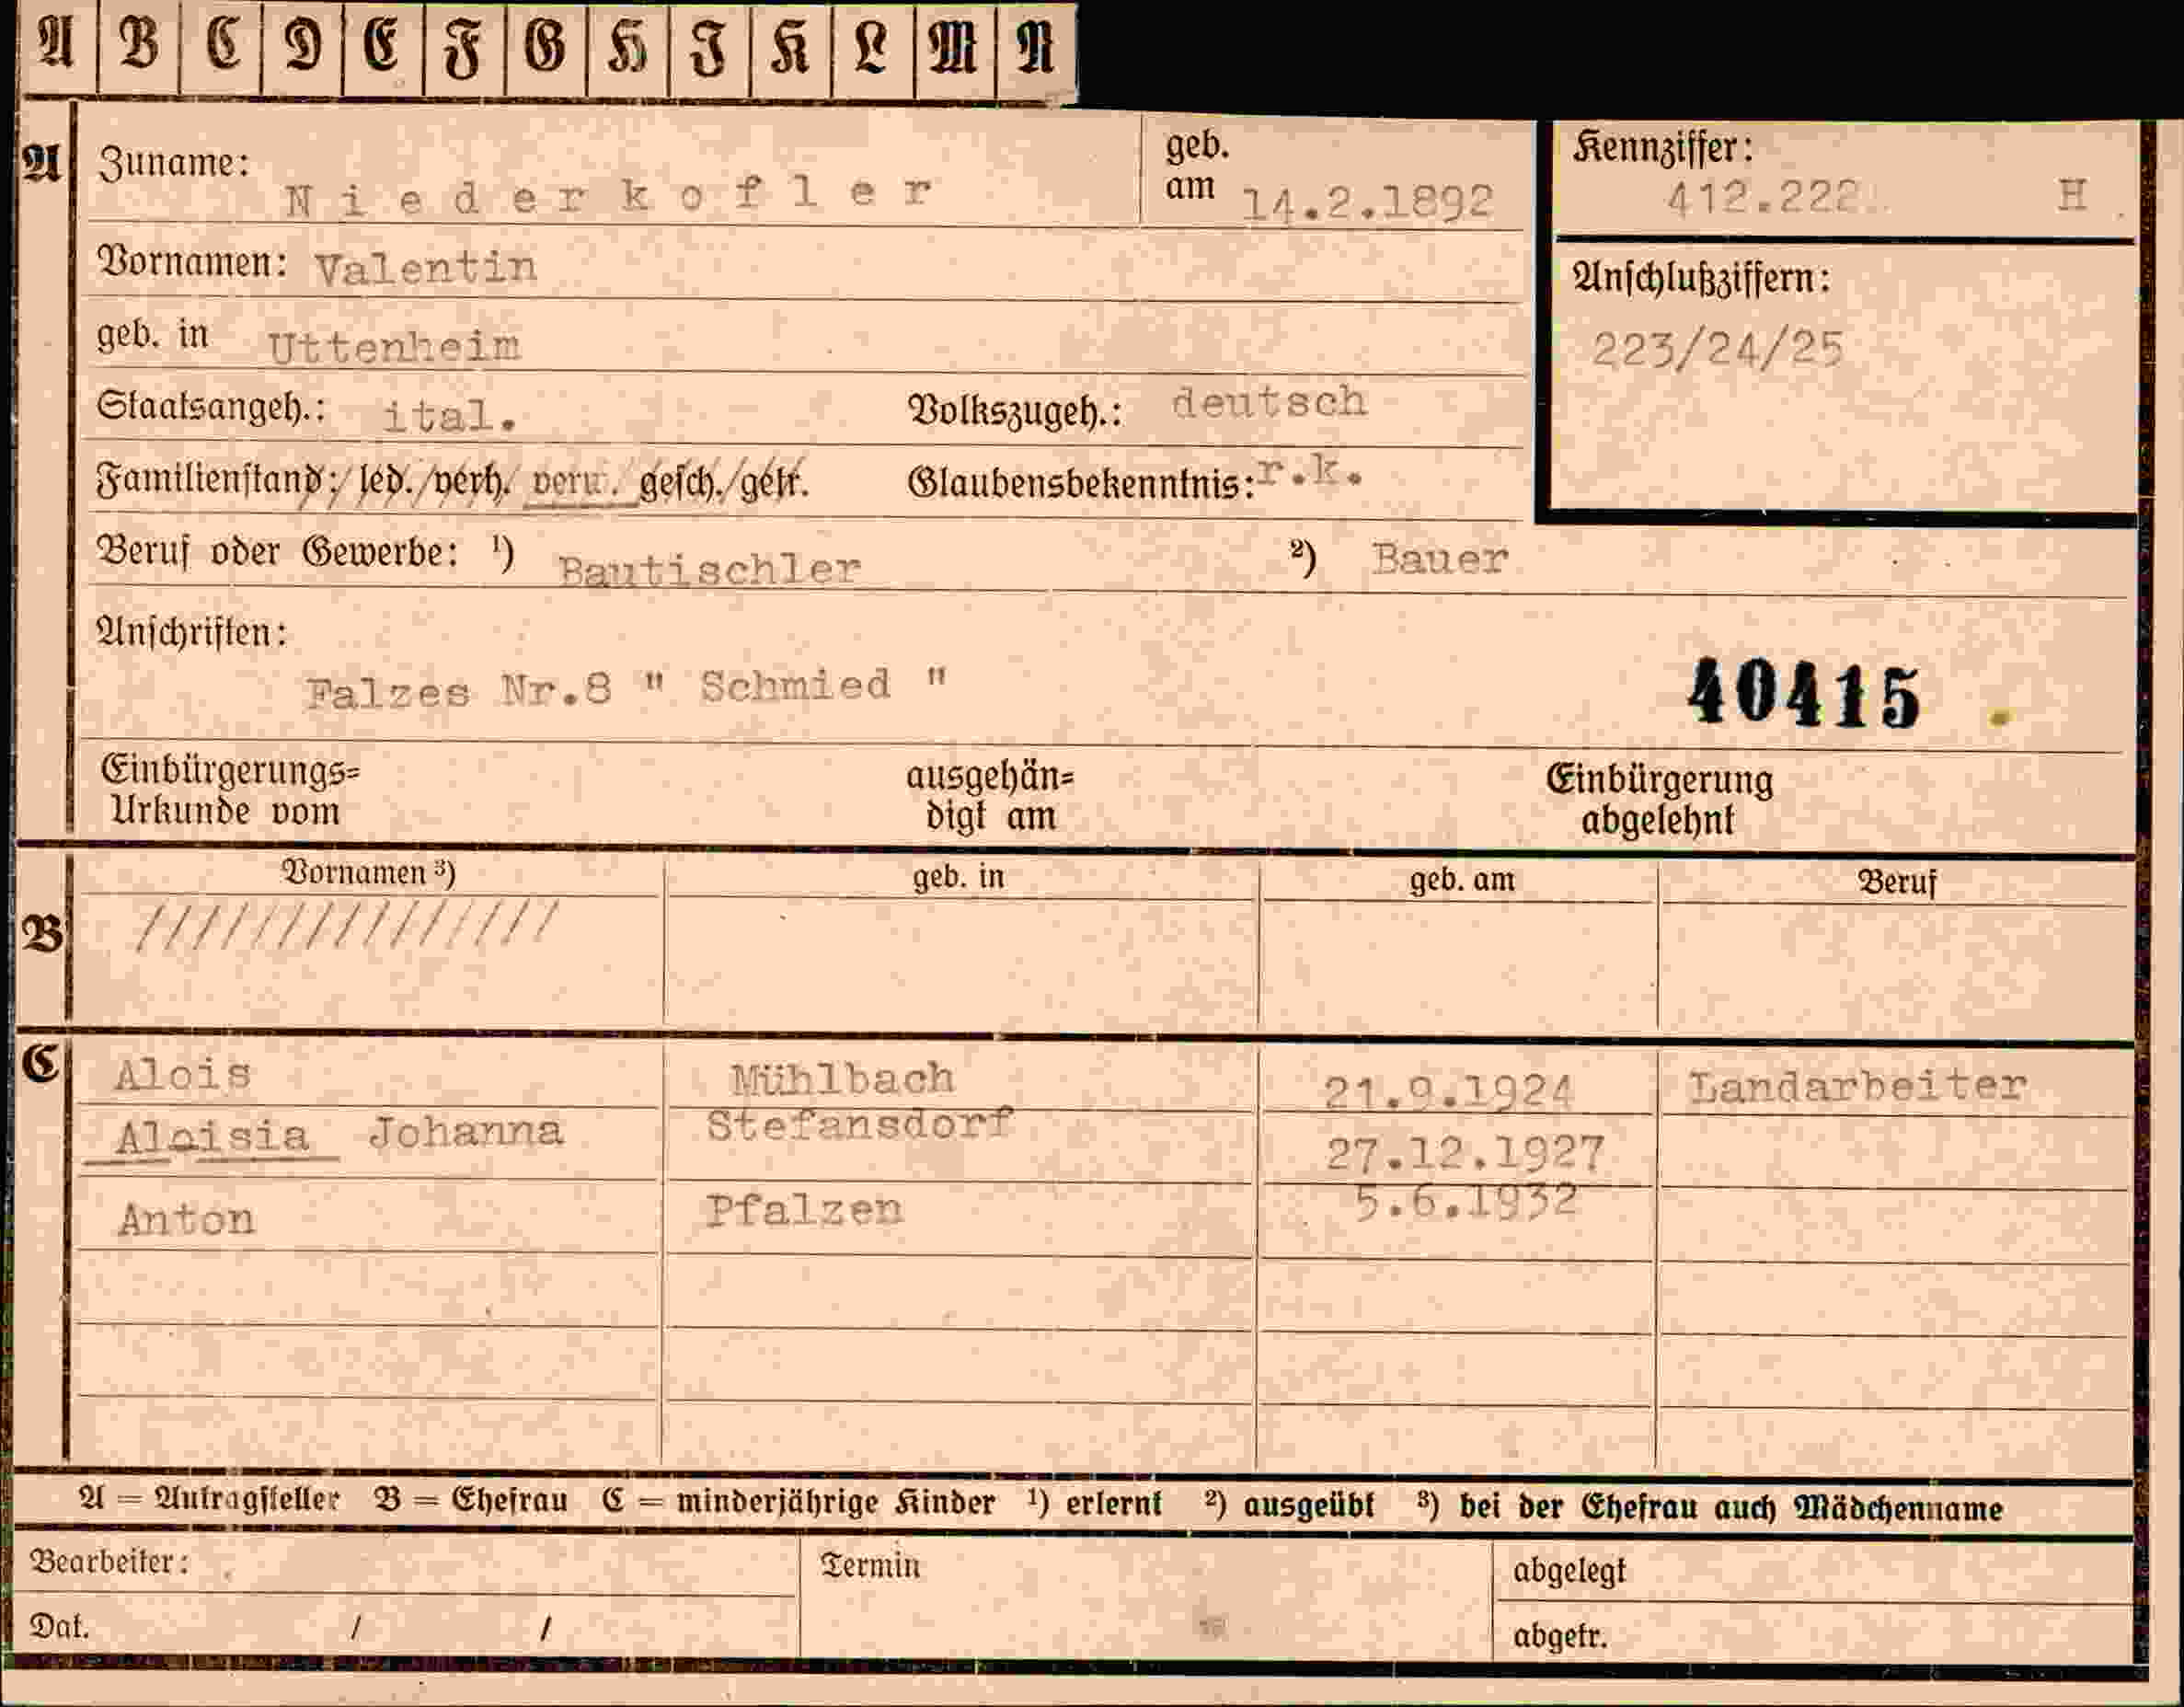 A B C D E F G H I K L M N
A Zuname: Niederkofler geb. am 14.2.1892 Kennziffer: 412.222 H
Vornamen: Valentin Anschlußziffern:
geb. in Uttenheim 223/24/25
Staatsangeh.: ital. Volkszugeh.: deutsch
Familienstand: led. verh. verw. gesch. getr. Glaubensbekenntnis: r.k.
Beruf oder Gewerbe: ¹) Bautischler ²) Bauer
Anschriften:
Falzes Nr.8 " Schmied " 40415
Einbürgerungs= ausgehän= Einbürgerung
Urkunde vom digt am abgelehnt
Vornamen ³) geb. in geb. am Beruf
B ///////////////
C Alois Mühlbach 21.9.1924 Landarbeiter
Aloisia Johanna Stefansdorf 27.12.1927
Anton Pfalzen 5.6.1932
A = Antragsteller B = Ehefrau C = minderjährige Kinder ¹) erlernt ²) ausgeübt ³) bei der Ehefrau auch Mädchenname
Bearbeiter: Termin abgelegt
Dat. / / abgetr.